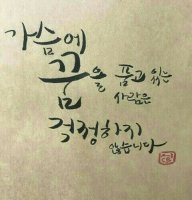 가슴에
꿈을 품고 있는
사람은
걱정하지
않습니다